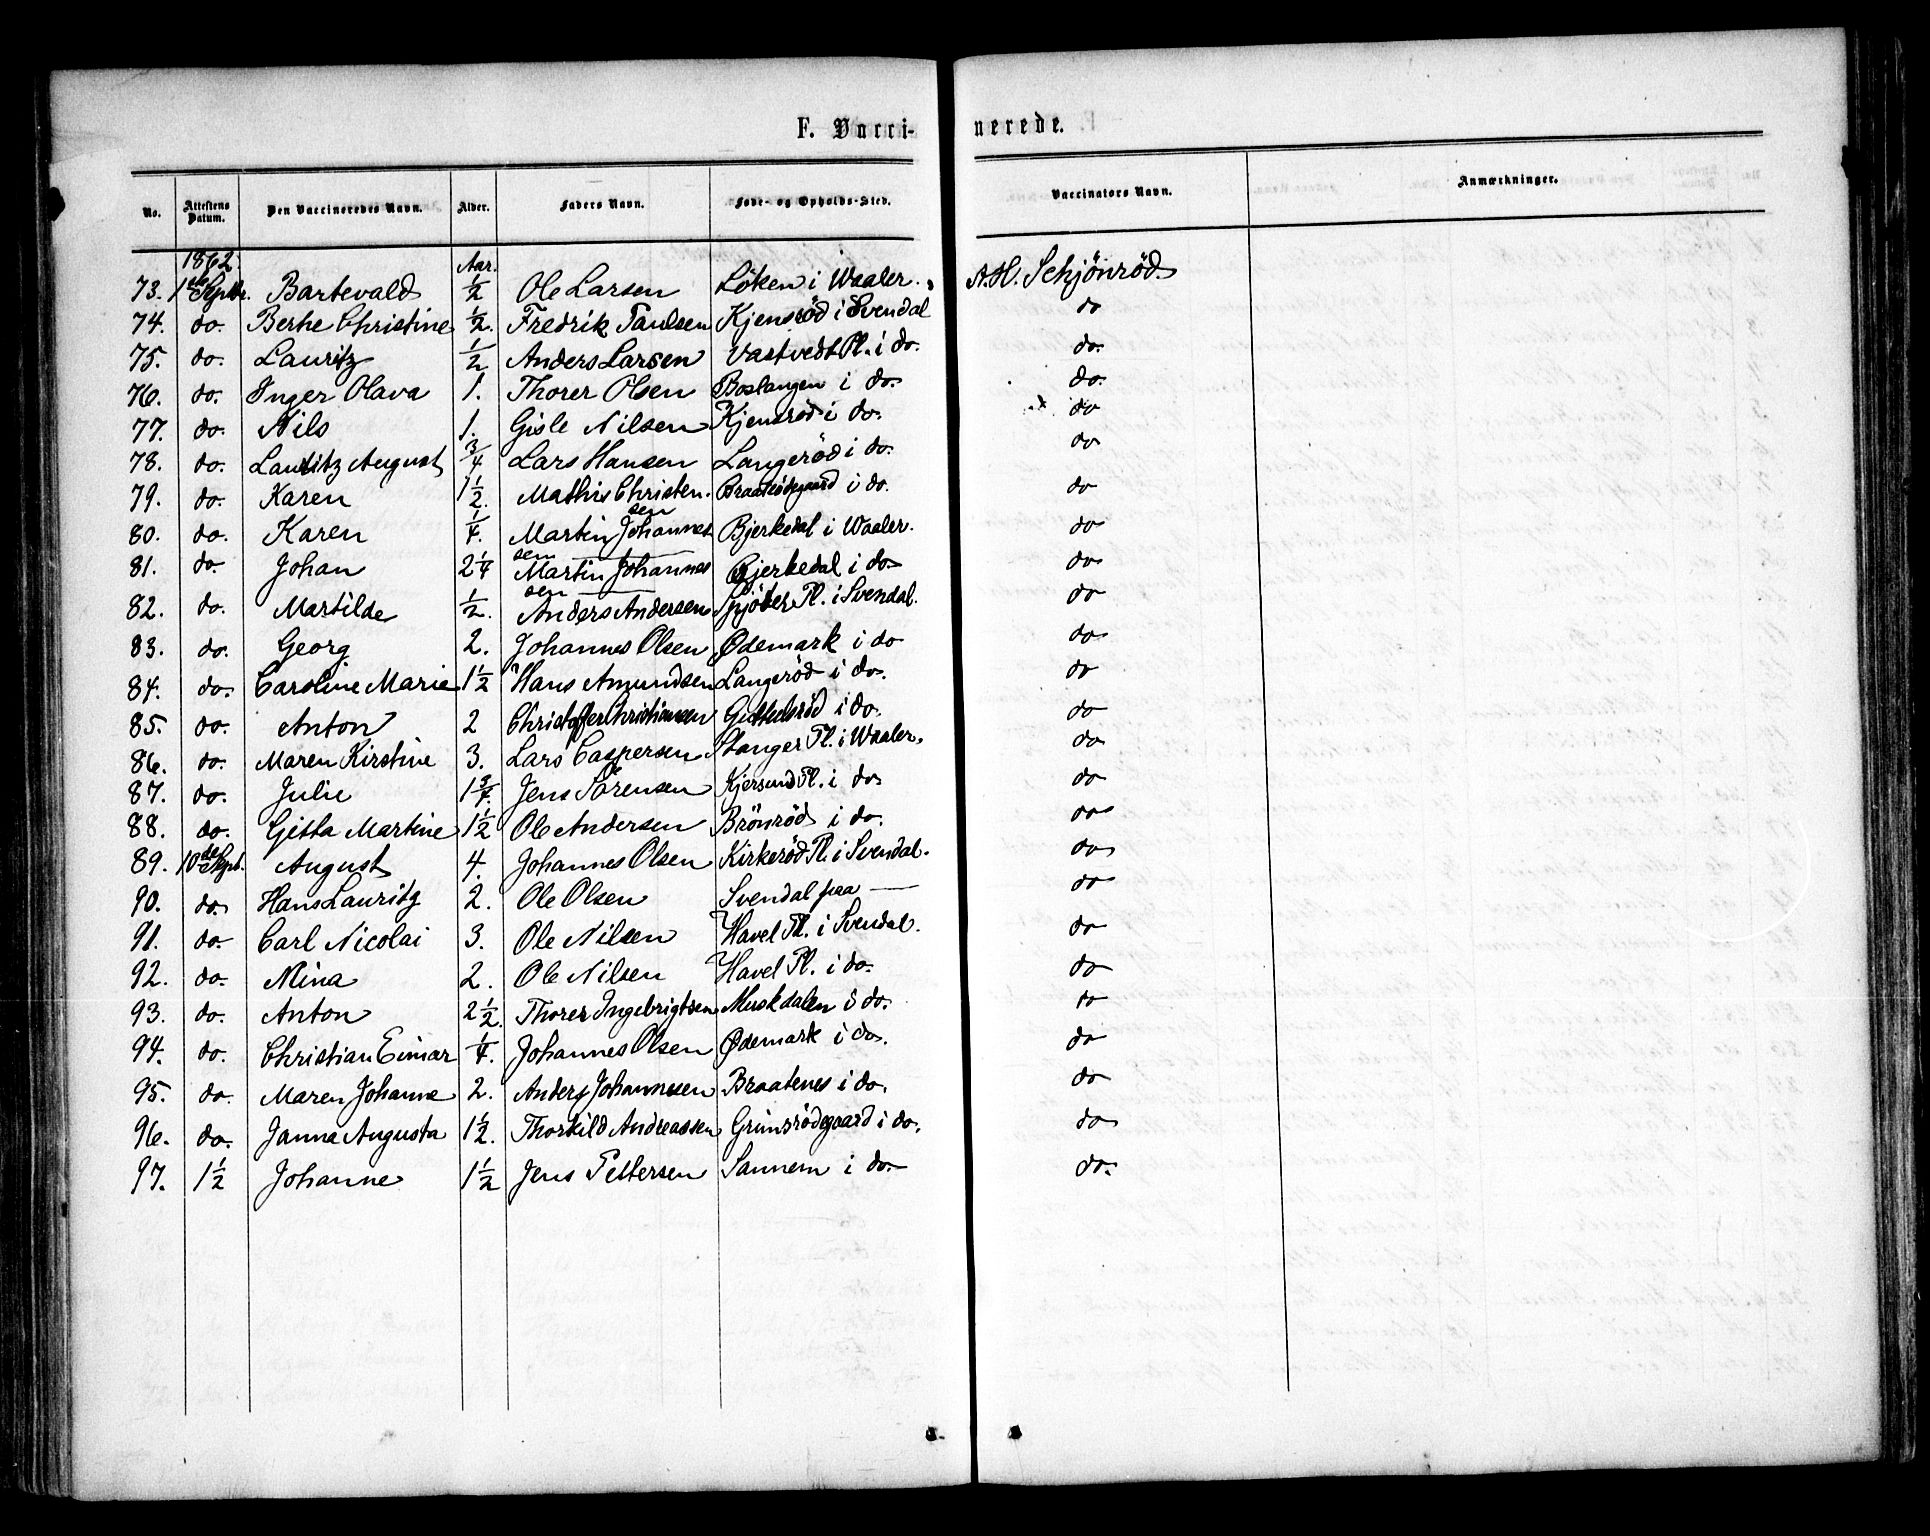 F. Vacci-nerede.
No. Attestens Datum. Den Vaccineredes Navn. Alder. Faders Navn. Føde- og Opholds-Sted. Vaccinators Navn. Anmærkninger.
1862. Aar.
73. 1ste Septbr. Bartevald 1/2 Ole Larsen Löken i Waaler. A.H. Schjönröd.
74. do. Berthe Christine 1/2. Fredrik Paulsen Kjensröd i Svendal do
75. do. Lauritz 1/2 Anders Larsen Vastvedt Pl. i do. do.
76. do. Inger Olava 1. Thorer Olsen Boslangen i do. do.
77. do. Nils 1. Gisle Nilsen Kjensröd i do. do
78. do. Lauritz August 3/4 Lars Hansen Langeröd i do. do
79. do. Karen 1 1/2. Mathis Christensen Braateödegaard i do. do
80. do. Karen 1/4. Martin Johannessen Bjerkedal i Waaler. do
81. do. Johan 2 1/4 Martin Johannessen Bjerkedal i do. do
82. do. Martilde 1/2. Anders Andersen Pl. i Svendal. do
83. do. Georg 2. Johannes Olsen Ødemark i do do
84. do. Caroline Marie 1 1/2 Hans Amundsen Langeröd i do. do
85. do. Anton 2 Christoffer Christiansen i do. do
86. do. Maren Kirstine 3. Lars Caspersen Stanger Pl. i Waaler. do
87. do. Julie 1 3/4. Jens Sörensen Kjersund Pl. i do. do
88. do. Gitta Martine 1 1/2 Ole Andersen Brönröd i do. do
89. 10de Septb. August 4. Johannes Olsen Kirkeröd Pl. i Svendal. do
90. do. Hans Lauritz 2. Ole Olsen Svendal paa — do
91. do. Carl Nicolai 3. Ole Nilsen Havel Pl. i Svendal. do
92. do. Mina 2. Ole Nilsen Havel Pl. i do. do
93. do. Anton 2 1/2. Thorer Ingebrigtsen Muskdalen i do. do
94. do. Christian Einar 1/4. Johannes Olsen Ødemark i do. do
95. do. Maren Johanne 2. Anders Johannesen Braatenes i do. do
96. do. Janna Augusta 1 1/2. Thorkild Andreassen Grimsrödgaard i do. do
97. 1 1/2 Johanne 1 1/2 Jens Pettersen Sannem i do. do.